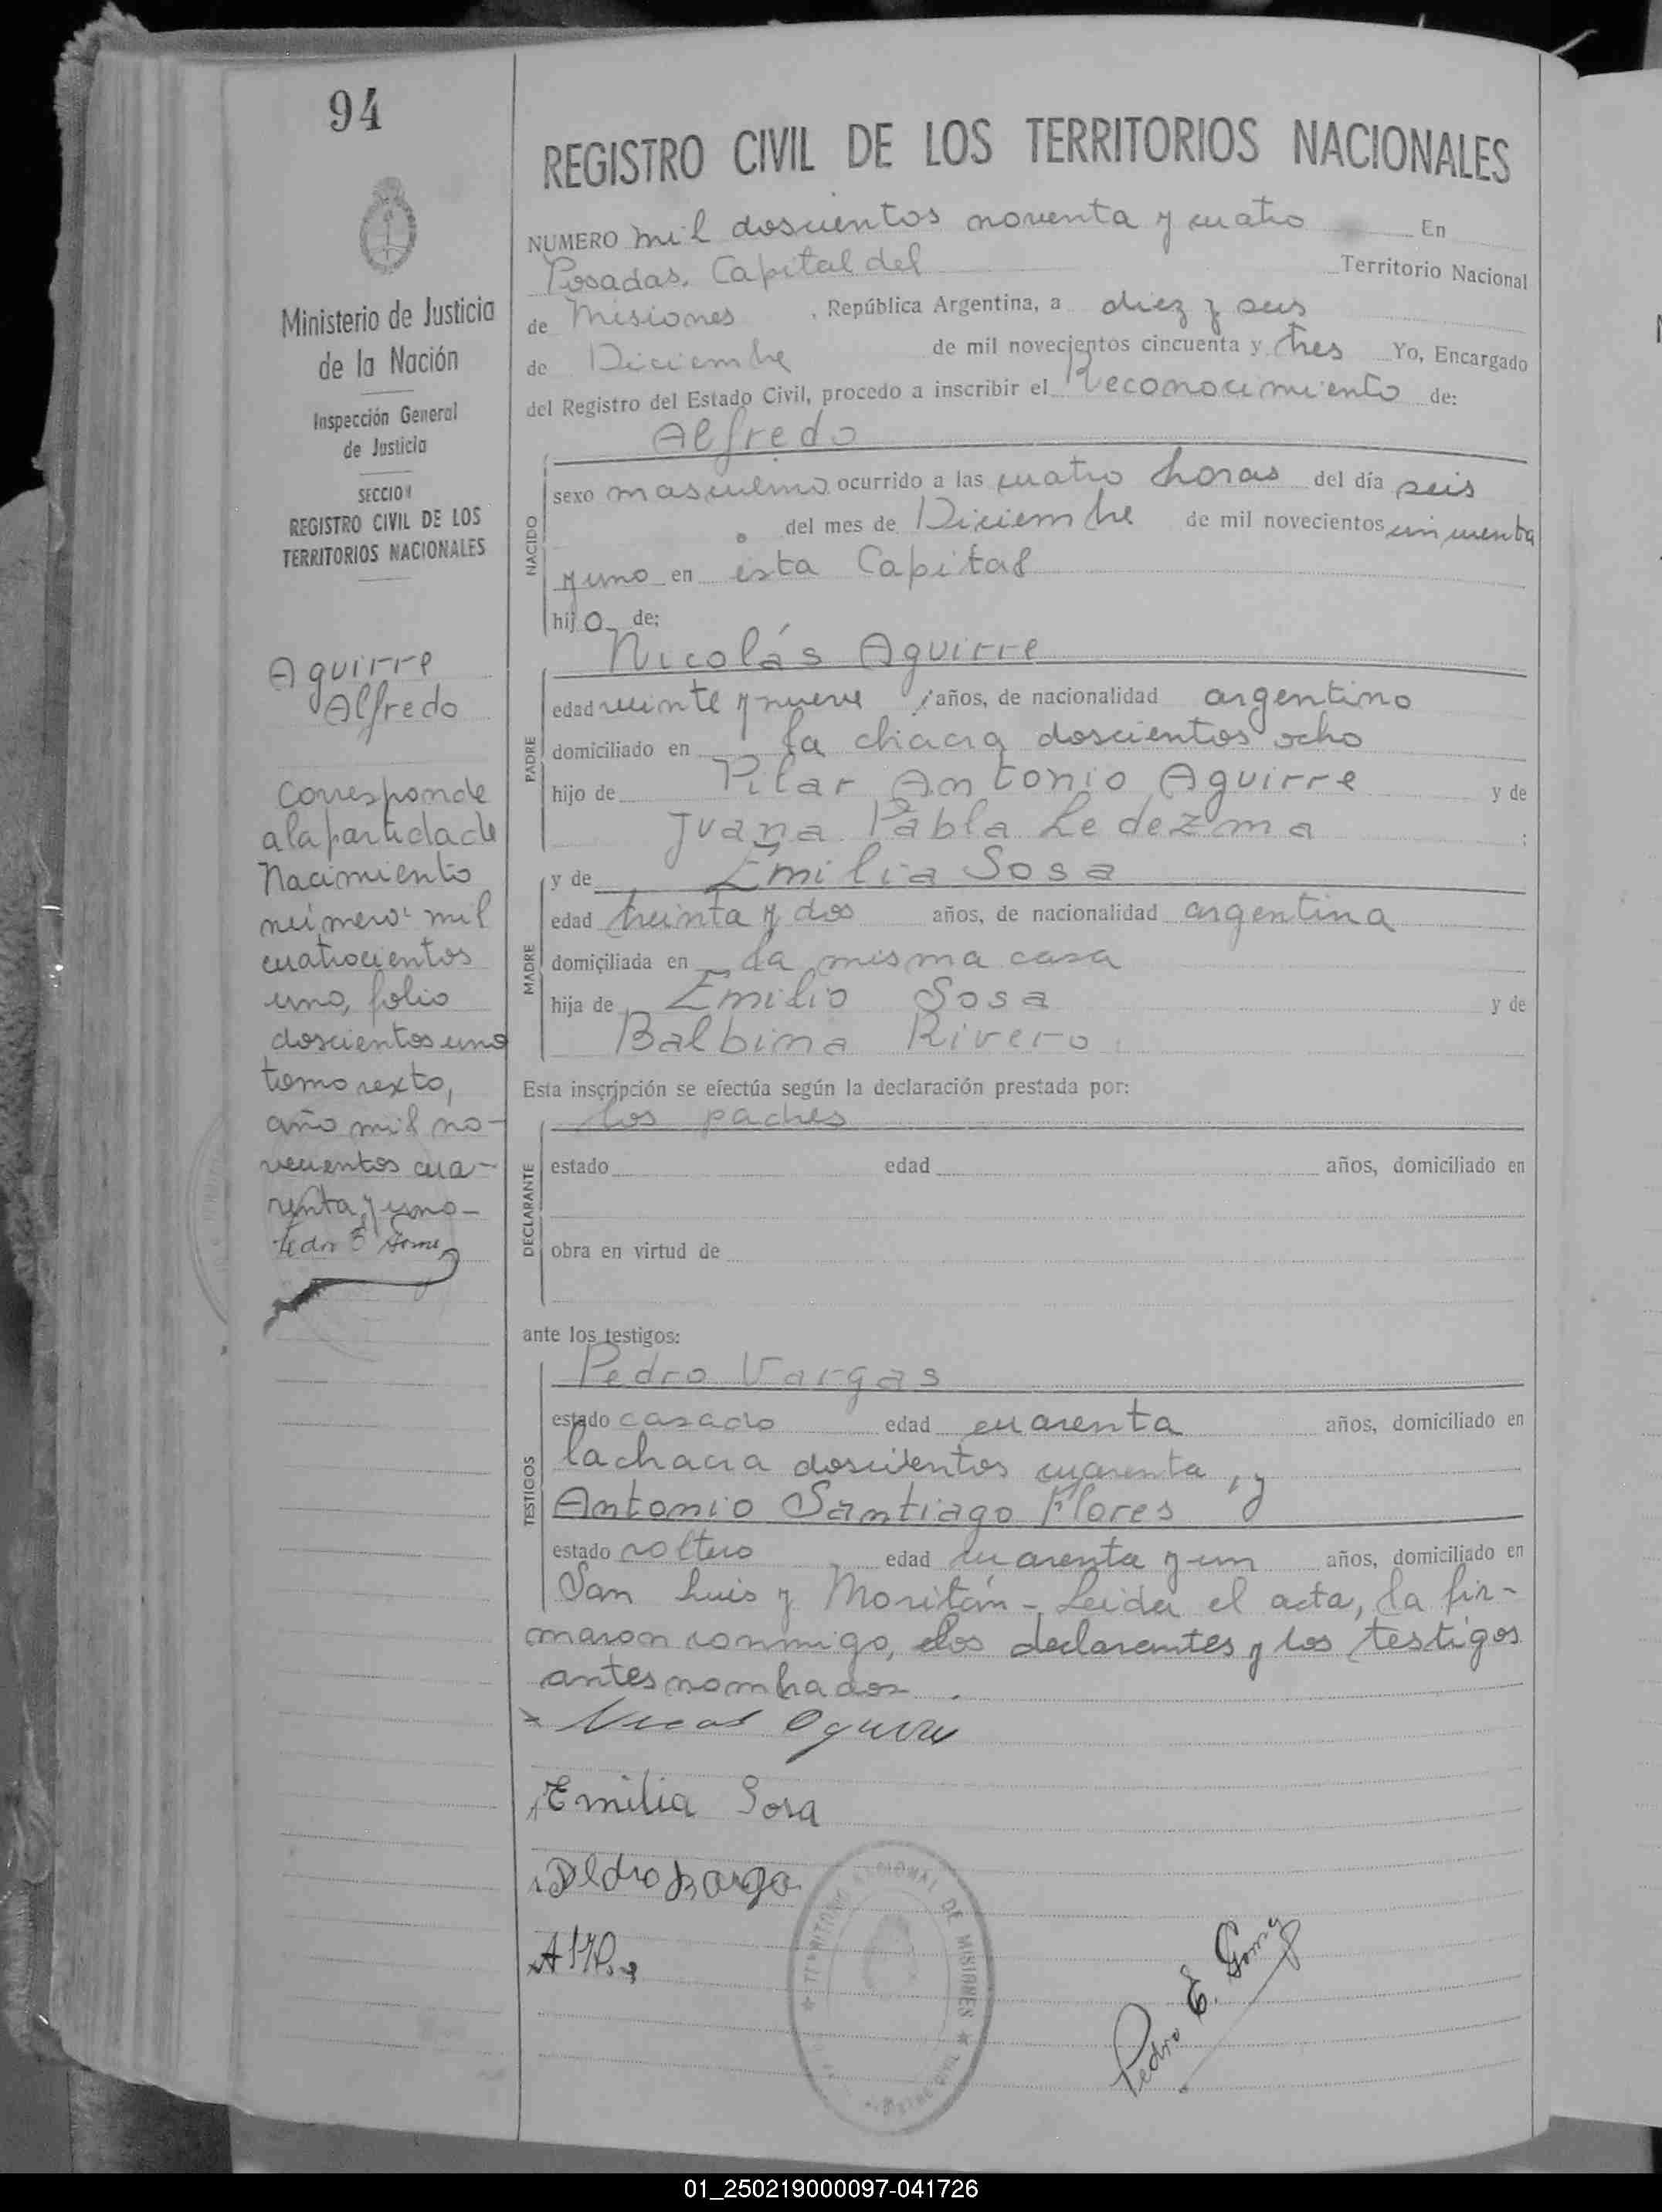 94
Ministerio de Justicia
de la Nación
Inspección General
de Justicia
SECCION
REGISTRO CIVIL DE LOS
TERRITORIOS NACIONALES
Aguirre
Alfredo
Corresponde
a la partida de
Nacimiento
número mil
cuatrocientos
uno, folio
doscientos uno
tomo sexto,
año mil no-
vecientos cua-
renta y uno-
Pedro E Gomez
REGISTRO CIVIL DE LOS TERRITORIOS NACIONALES
NUMERO mil doscientos noventa y cuatro En
Posadas, Capital del Territorio Nacional
de Misiones, República Argentina, a diez y seis
de Diciembre de mil novecientos cincuenta y tres Yo, Encargado
del Registro del Estado Civil, procedo a inscribir el Reconocimiento de:
Alfredo
NACIDO
sexo masculino ocurrido a las cuatro horas del día seis
del mes de Diciembre de mil novecientos cincuenta
y uno en esta Capital
hijo de:
Nicolás Aguirre
PADRE
edad veinte y nueve años, de nacionalidad argentino
domiciliado en la chacra doscientos ocho
hijo de Pilar Antonio Aguirre y de
Juana Pabla Ledezma ;
y de Emilia Sosa
MADRE
edad treinta y dos años, de nacionalidad argentina
domiciliada en la misma casa
hija de Emilio Sosa y de
Balbina Rivero.
Esta inscripción se efectúa según la declaración prestada por:
los padres
DECLARANTE
estado edad años, domiciliado en
obra en virtud de
ante los testigos:
Pedro Vargas
TESTIGOS
estado casado edad cuarenta años, domiciliado en
la chacra doscientos cuarenta, y
Antonio Santiago Flores
estado soltero edad cuarenta y un años, domiciliado en
San Luis y Moritán - Leida el acta, la fir-
maron conmigo, los declarantes y los testigos
antes nombrados.
Emilia Sosa
Pedro Barga
Pedro E. Gomez
TERRITORIO NACIONAL DE MISIONES
01_250219000097-041726